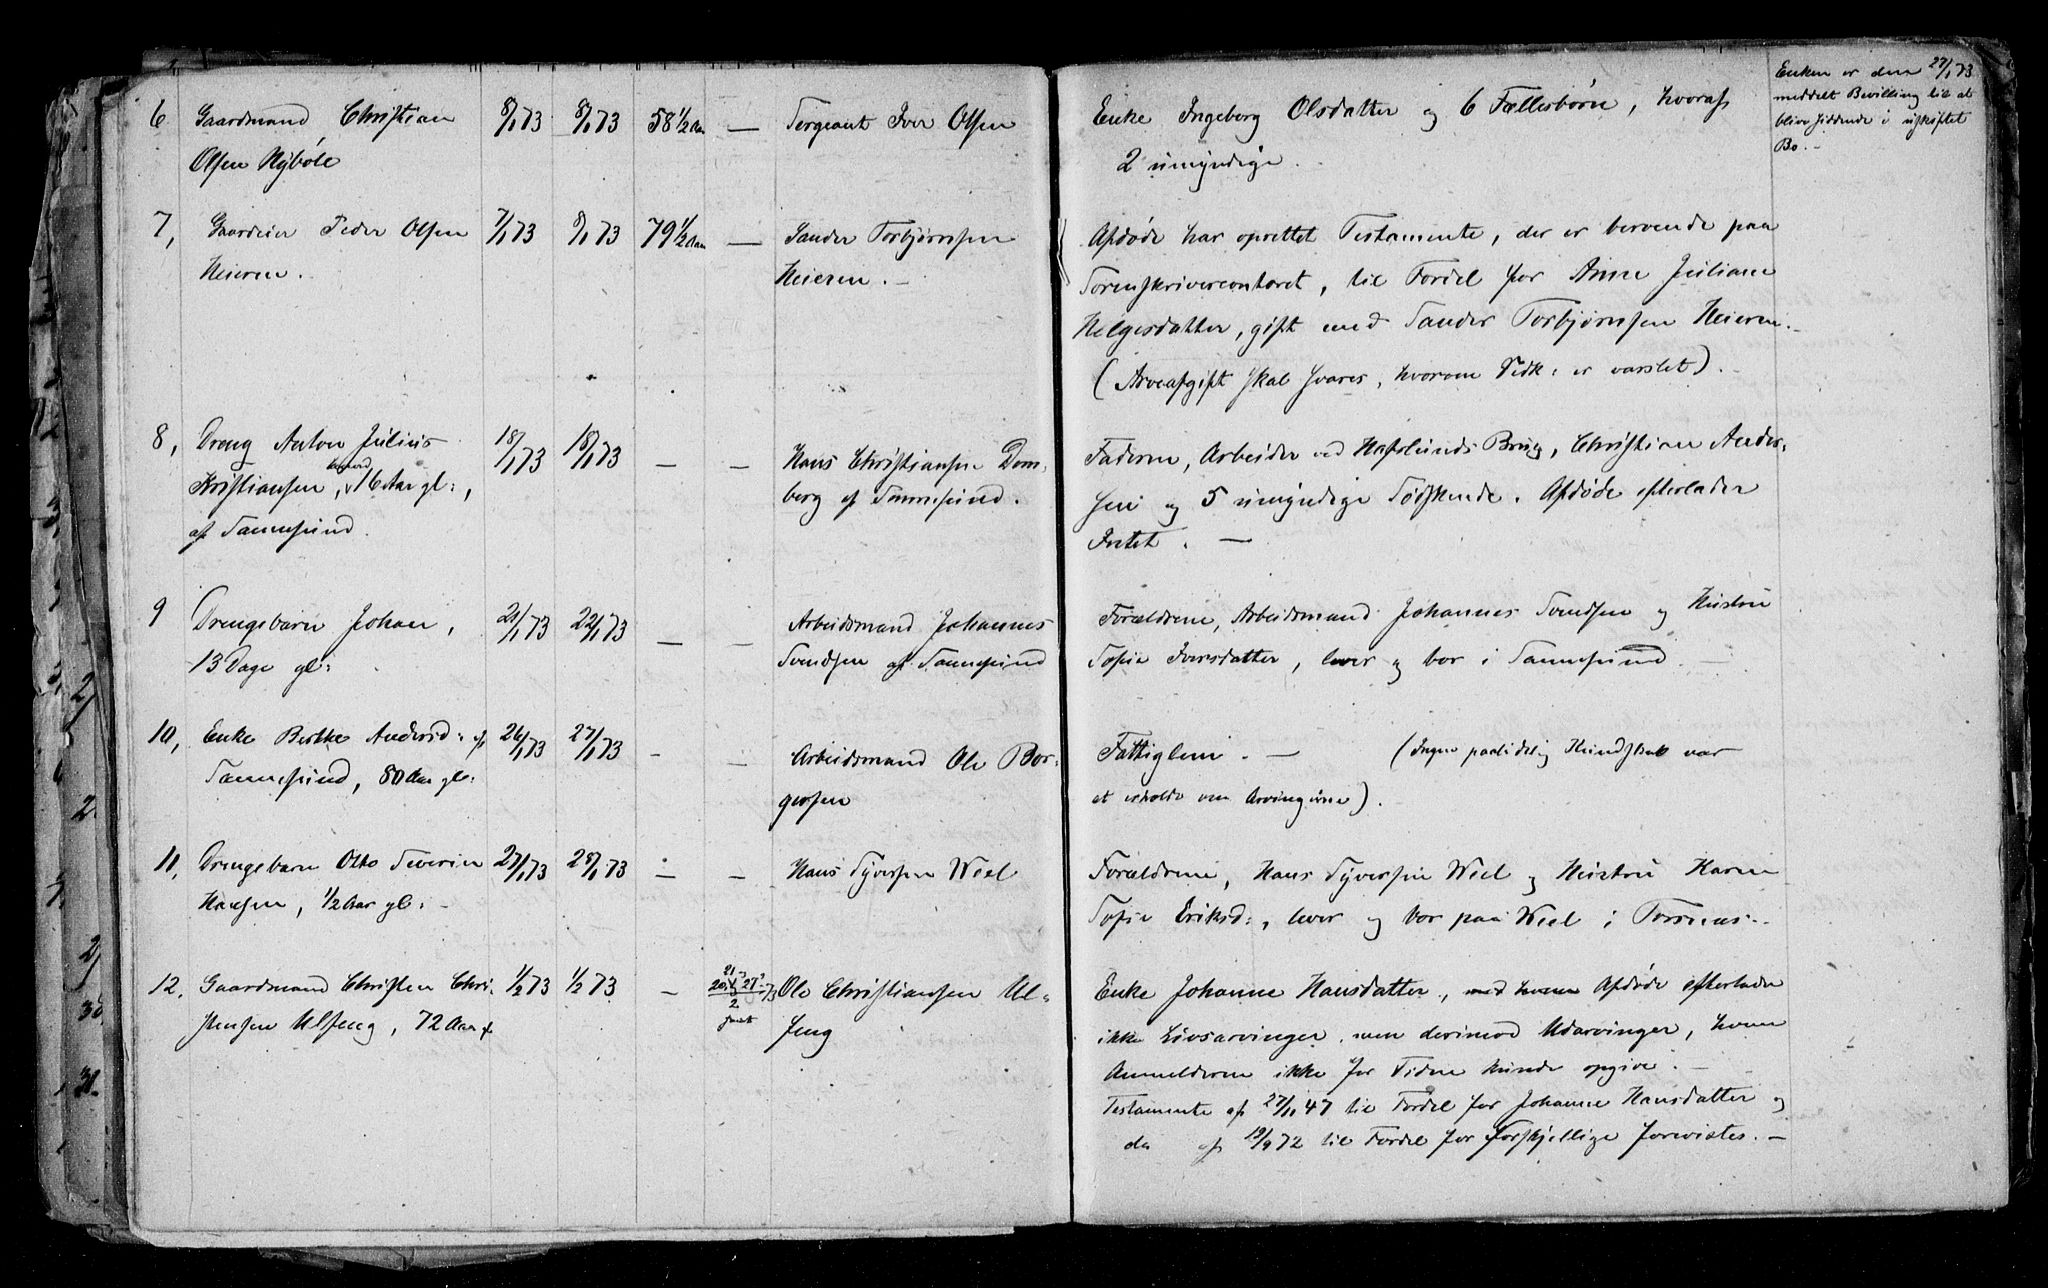 6 Gaardmand Christian 8/1 73 8/1 73 58 1/2 Aar — Sergeant Iver Olsen Enke Ingeborg Olsdatter og 6 Fællesbørn, hvoraf
Olsen Nybøle 2 umyndige.
Enken er den 27/1 73
meddelt Bevilling til at
blive siddende i uskiftet
Bo. —
7, Gaardeier Peder Olsen 7/1 73 8/1 73 79 1/2 Aar — Sander Torbjørnsen Afdøde har oprettet Testamente, der er beroende paa
Heieren. Heieren. — Sorenskrivercontoret, til Fordel for Anne Juliane
Helgesdatter, gift med Sander Torbjørnsen Heieren. —
(Arveafgift skal svares, hvorom Vedk: er varslet). —
8, Dreng Anton Julius 18/1 73 18/1 73 — — Hans Christiansen Dom- Faderen, Arbeider ved Hafslunds Brug, Christian Ander-
Kristiansen, 16 Aar gl:, berg af Sannesund. sen og 5 umyndige Sødskende. Afdøde efterlader
af Sannesund. Intet. —
9 Drengebarn Johan, 21/1 73 22/1 73 — — Arbeidsmand Johannes Forældrene, Arbeidsmand Johannes Svendsen og Hustru
13 Dage gl: Svendsen af Sannesund Sofie Iversdatter, lever og bor i Sannesund. —
10, Enke Berthe Andersd: af 26/1 73 27/1 73 — — Arbeidsmand Ole Bor- Fattiglem. — (Ingen paalidelig Kundskab var
Sannesund, 80 Aar gl: gersen at erholde om Arvingerne).
11, Drengebarn Otto Severin 27/1 73 28/1 73 — — Hans Syversen Weel Forældrene, Hans Syversen Weel og Hustru Karen
Hansen, 1/2 Aar gl: — Sofie Eriksd:, lever og bor paa Weel i Torsnæs. —
12, Gaardmand Christen Chri- 1/2 73 1/2 73 — Ole Christiansen Ul- Enke Johanne Hansdatter, med hvem Afdøde efterlader
stensen Ulseng, 72 Aar gl seng ikke Livsarvinger, men derimod Udarvinger, hvem
Anmelderen ikke for Tiden kunde opgive. —
Testamente af 27/11 47 til Fordel for Johanne Hansdatter og
do af 19/9 72 til Fordel for forskjellige forevistes. —